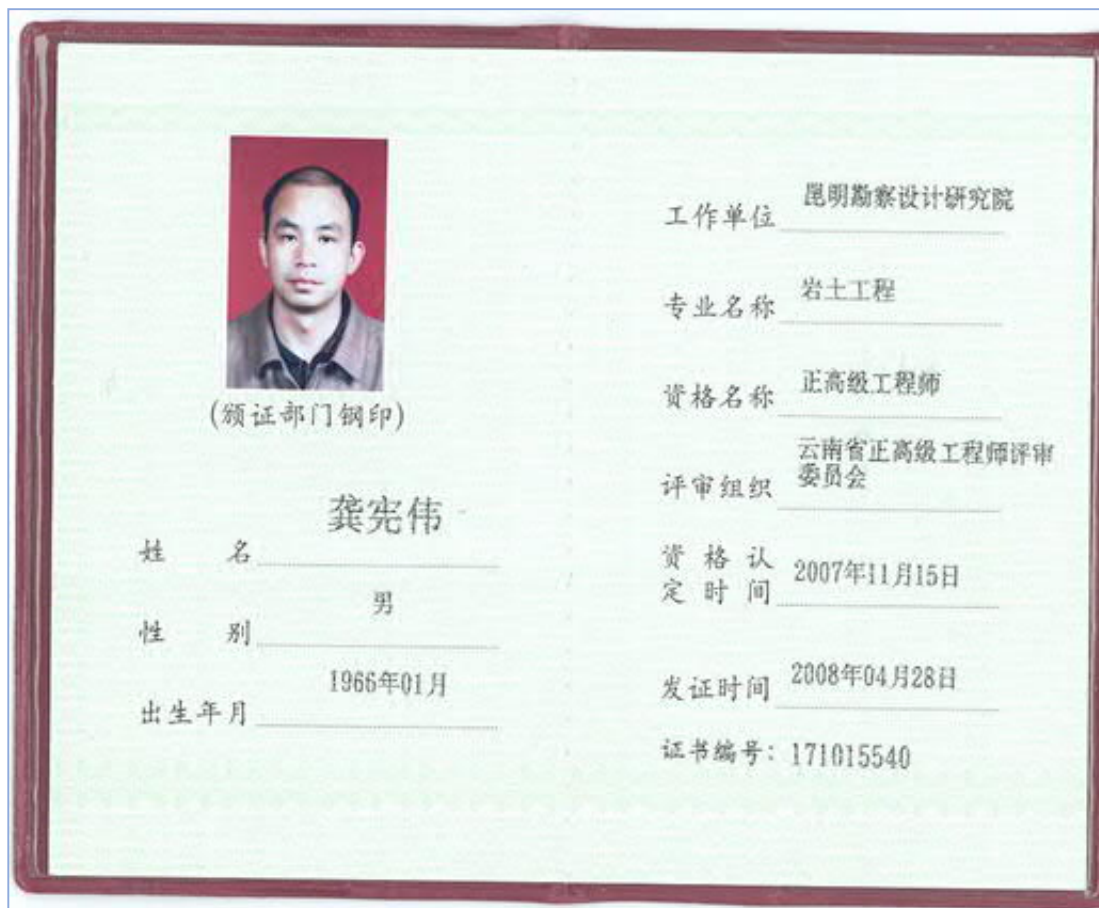 (颁证部门钢印)
姓 名 龚宪伟
性 别 男
出生年月 1966年01月
工作单位 昆明勘察设计研究院
专业名称 岩土工程
资格名称 正高级工程师
评审组织 云南省正高级工程师评审
委员会
资格认
定时间 2007年11月15日
发证时间 2008年04月28日
证书编号：171015540